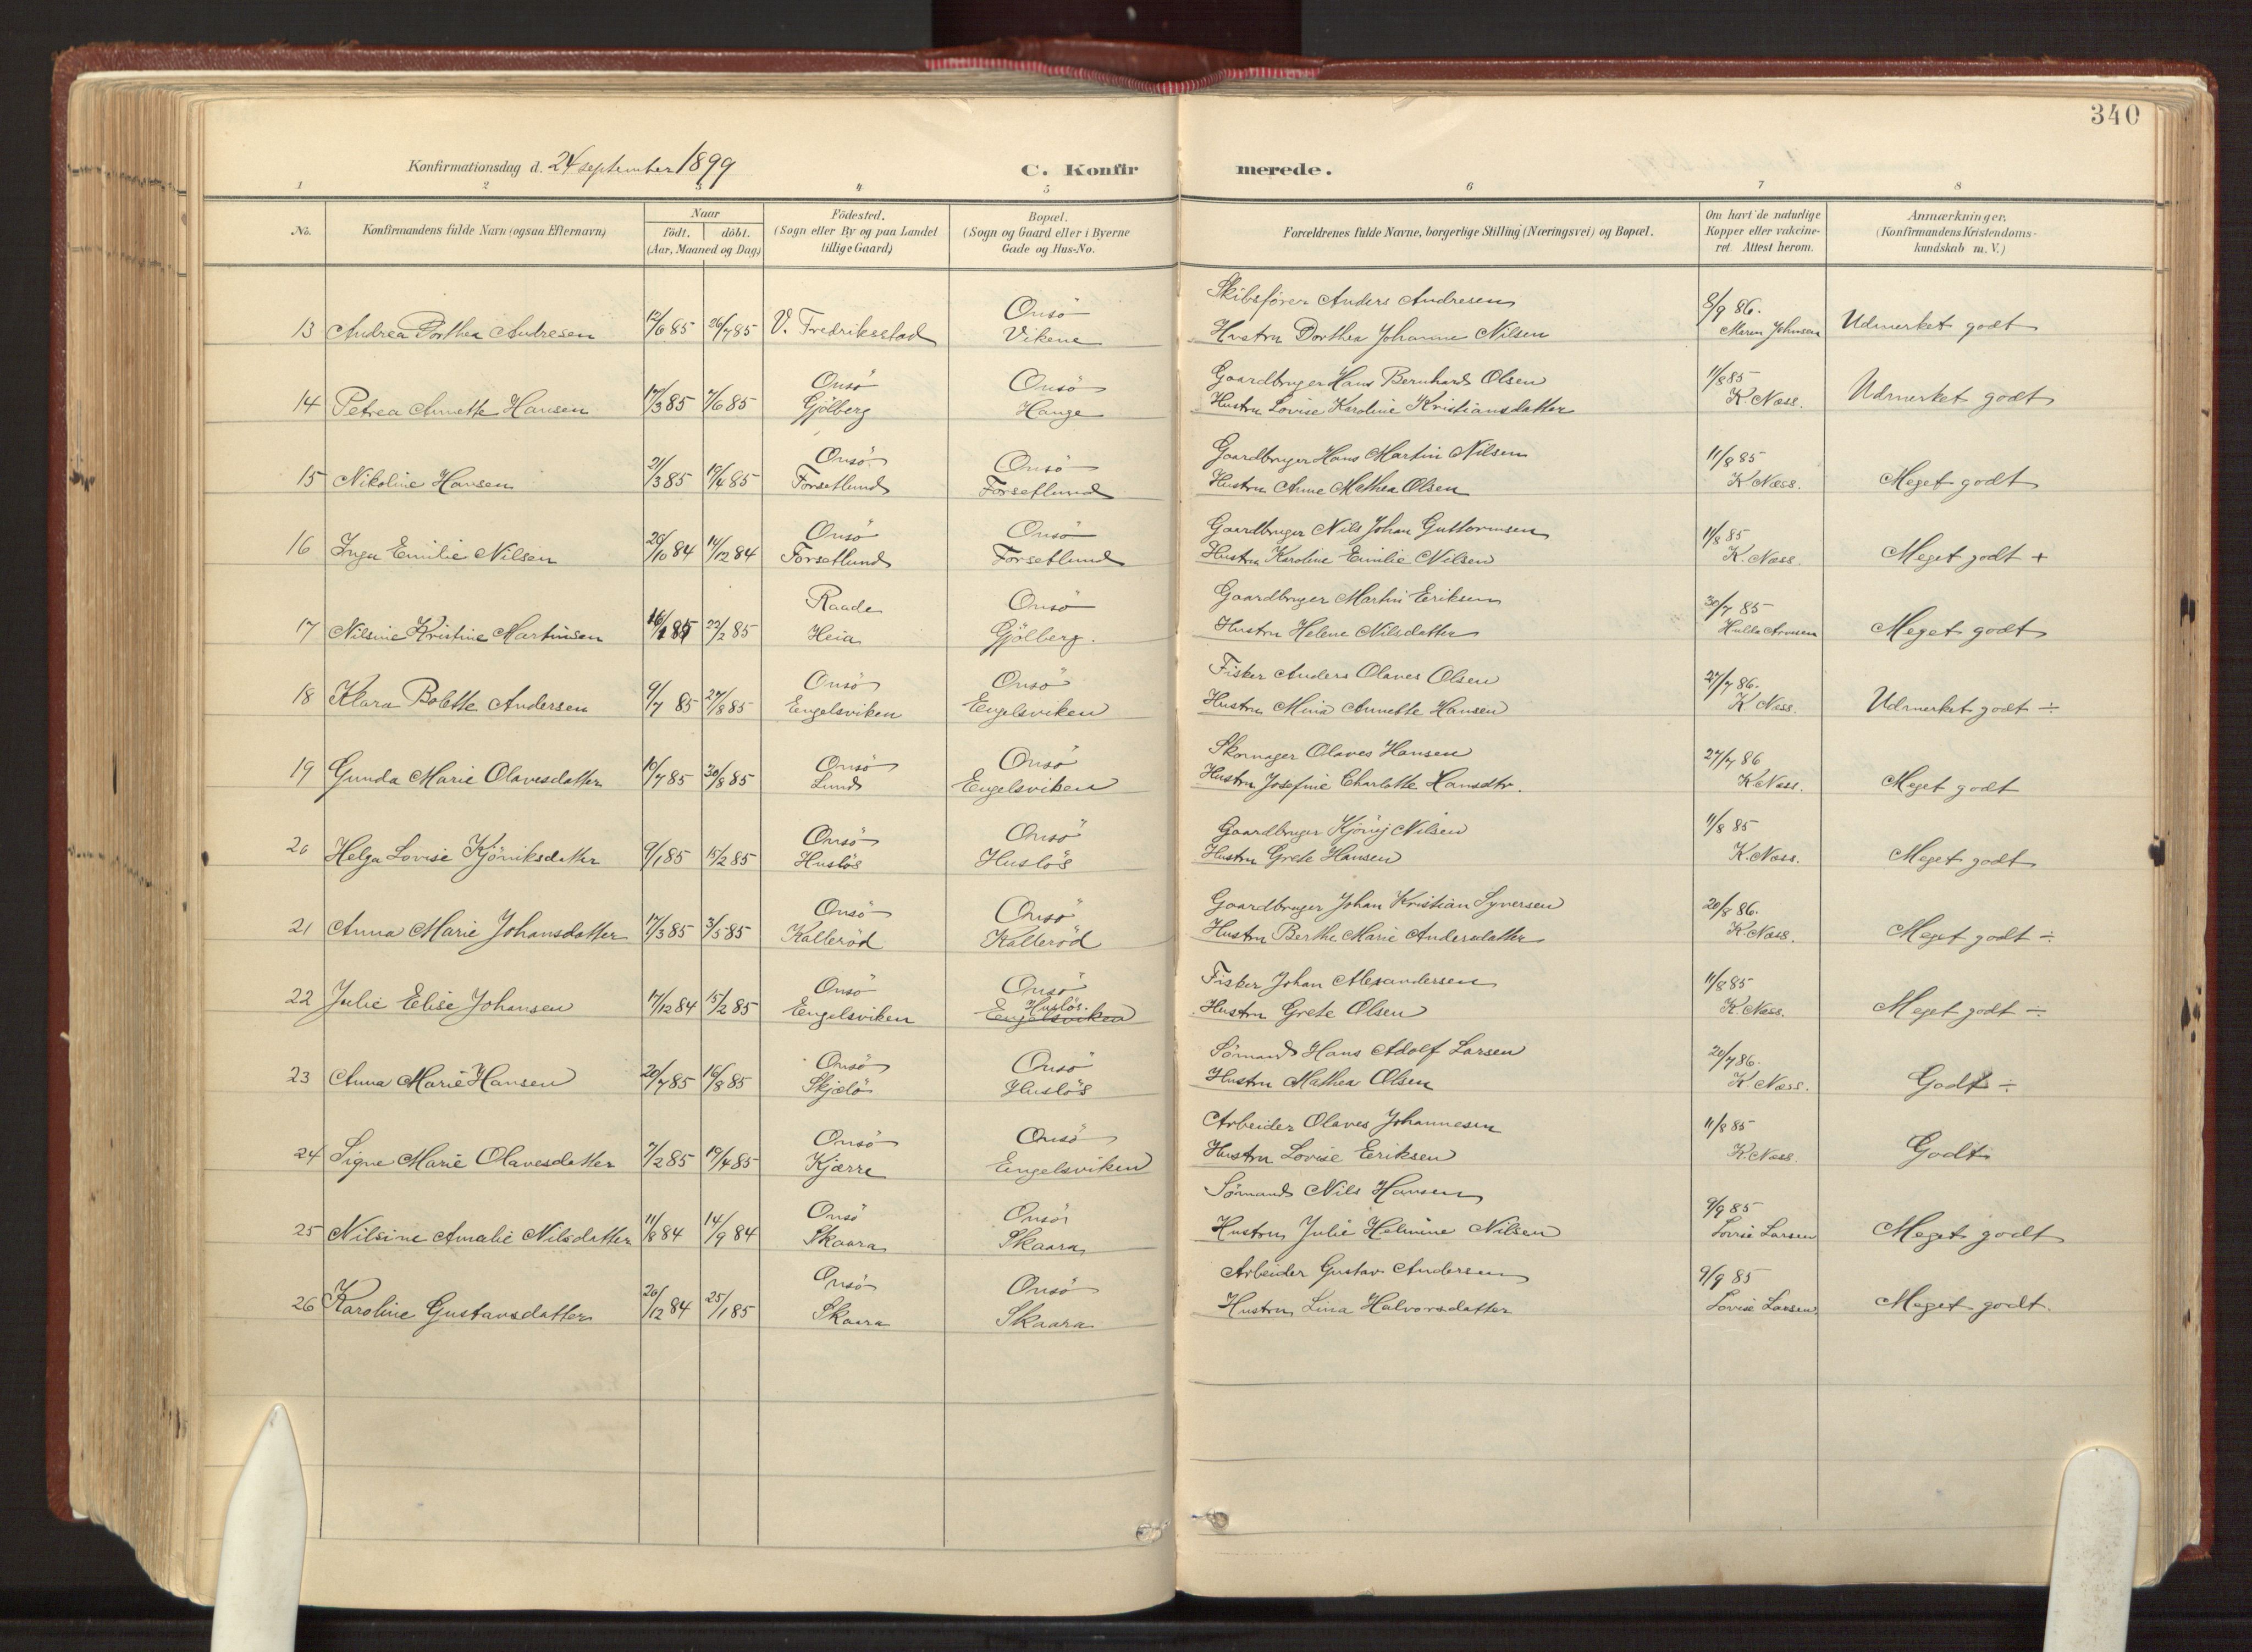 340
Konfirmationsdag d. 24 september 1899
C. Konfirmerede.
1 2 3 4 5 6 7 8
No.
Konfirmandens fulde Navn (ogsaa Efternavn)
Naar
födt. döbt.
(Aar, Maaned og Dag)
Födested.
(Sogn eller By og paa Landet
tillige Gaard)
Bopæl.
(Sogn og Gaard eller i Byerne
Gade og Hus-No.
Forældrenes fulde Navne, borgerlige Stilling (Næringsvei) og Bopæl.
Om havt de naturlige
Kopper eller vakcine-
ret. Attest herom.
Anmærkninger.
(Konfirmandens Kristendoms-
kundskab m. V.)
Onsö Skibsfører Anders Andresen 8/9 86.
13 Andrea Dorthea Andresen 12/6 85 26/7 85 V. Fredriksstad Vikene Hustru Dorthea Johanne Nilsen Maren Johnsen Udmerket godt
Onsö Onsö Gaardbruger Hans Bernhard Olsen 11/8 85
14 Petrea Annette Hansen 17/3 85 7/6 85 Gjölberg Hauge Hustru Lovise Karoline Kristiansdatter K. Næss. Udmerket godt
Onsö Onsö Gaardbruger Hans Martin Nilsen 11/8 85
15 Nikoline Hansen 21/3 85 19/4 85 Forsetlund Forsetlund Hustru Anne Mathea Olsen K Næss. Meget godt
Onsö Onsö Gaardbruger Nils Johan Guttormsen 11/8 85
16 Inga Emilie Nilsen 26/10 84 14/12 84 Forsetlund Forsetlund Hustru Karoline Emilie Nilsen K. Næss. Meget godt +
Raade Onsö Gaardbruger Martin Eriksen 30/7 85
17 Nilsine Kristine Martinsen 16/1 85 22/2 85 Heia Gjölberg. Hustru Helene Nilsdatter Hulda Arnesen Meget godt
Onsö Onsö Fisker Anders Olaves Olsen 27/7 86.
18 Klara Bolette Andersen 9/7 85 27/8 85 Engelsviken Engelsviken Hustru Mina Annette Hansen K Næss. Udmerket godt ÷
Onsö Onsö Skomager Olaves Hansen 27/7 86
19 Gunda Marie Olavesdatter 10/7 85 30/8 85 Lund Engelsviken Hustru Josefine Charlotte Hansdtr. K Næss. Meget godt
Onsö Onsö Gaardbruger Kjönig Nilsen 11/8 85
20 Helga Lovise Kjöniksdatter 9/1 85 15/2 85 Huslös Huslös Hustru Grete Hansen K. Næss. Meget godt
Onsö Onsö Gaardbruger Johan Kristian Syversen 20/8 86.
21 Anna Marie Johansdatter 17/3 85 3/5 85 Kalleröd Kalleröd Hustru Berthe Marie Andersdatter K. Næss. Meget godt ÷
Onsö Onsö Fisker Johan Alexandersen 11/8 85
22 Julie Elise Johansen 17/12 84 15/2 85 Engelsviken Huslös. Engelsviken Hustru Grete Olsen K. Næss. Meget godt ÷
Onsö Onsö Sömand Hans Adolf Larsen 20/7 86.
23 Anna Marie Hansen 20/7 85 16/8 85 Skjælö Huslös Hustru Mathea Olsen K Næss. Godt ÷
Onsö Onsö Arbeider Olaves Johannesen 11/8 85
24 Signe Marie Olavesdatter 7/2 85 19/4 85 Kjærre Engelsviken Hustru Lovise Eriksen K. Næss. Godt
Onsö Onsö Sömand Nils Hansen 9/9 85
25 Nilsine Amalie Nilsdatter 11/8 84 14/9 84 Skaara Skaara Hustru Julie Helmine Nilsen Lovise Larsen Meget godt
Onsö Onsö Arbeider Gustav Andersen 9/9 85
26 Karoline Gustavsdatter 26/12 84 25/1 85 Skaara Skaara Hustru Lina Halvorsdatter Lovise Larsen Meget godt.